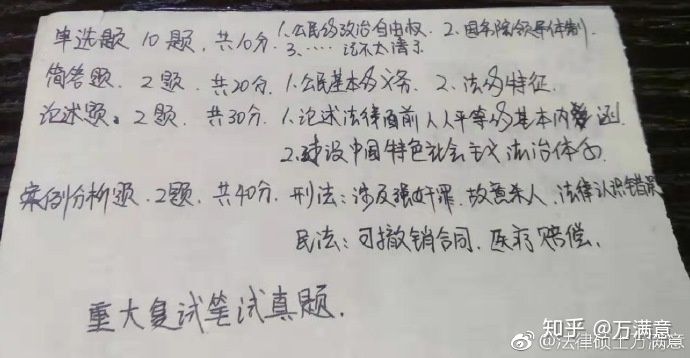 单选题 10题，共10分 1.公民的政治自由权 2.国务院领导体制
3.…… 记不太清了
简答题. 2题，共20分 1.公民基本的义务 2.法的特征.
论述题. 2题，共30分 1.论述法律面前人人平等的基本内涵
2.建设中国特色社会主义法治体系
案例分析题. 2题，共40分. 刑法：涉及强奸罪、故意杀人、法律认识错误
民法：可撤销合同、医疗赔偿.
重大复试笔试真题.
知乎 @万满意
@法律硕士万满意